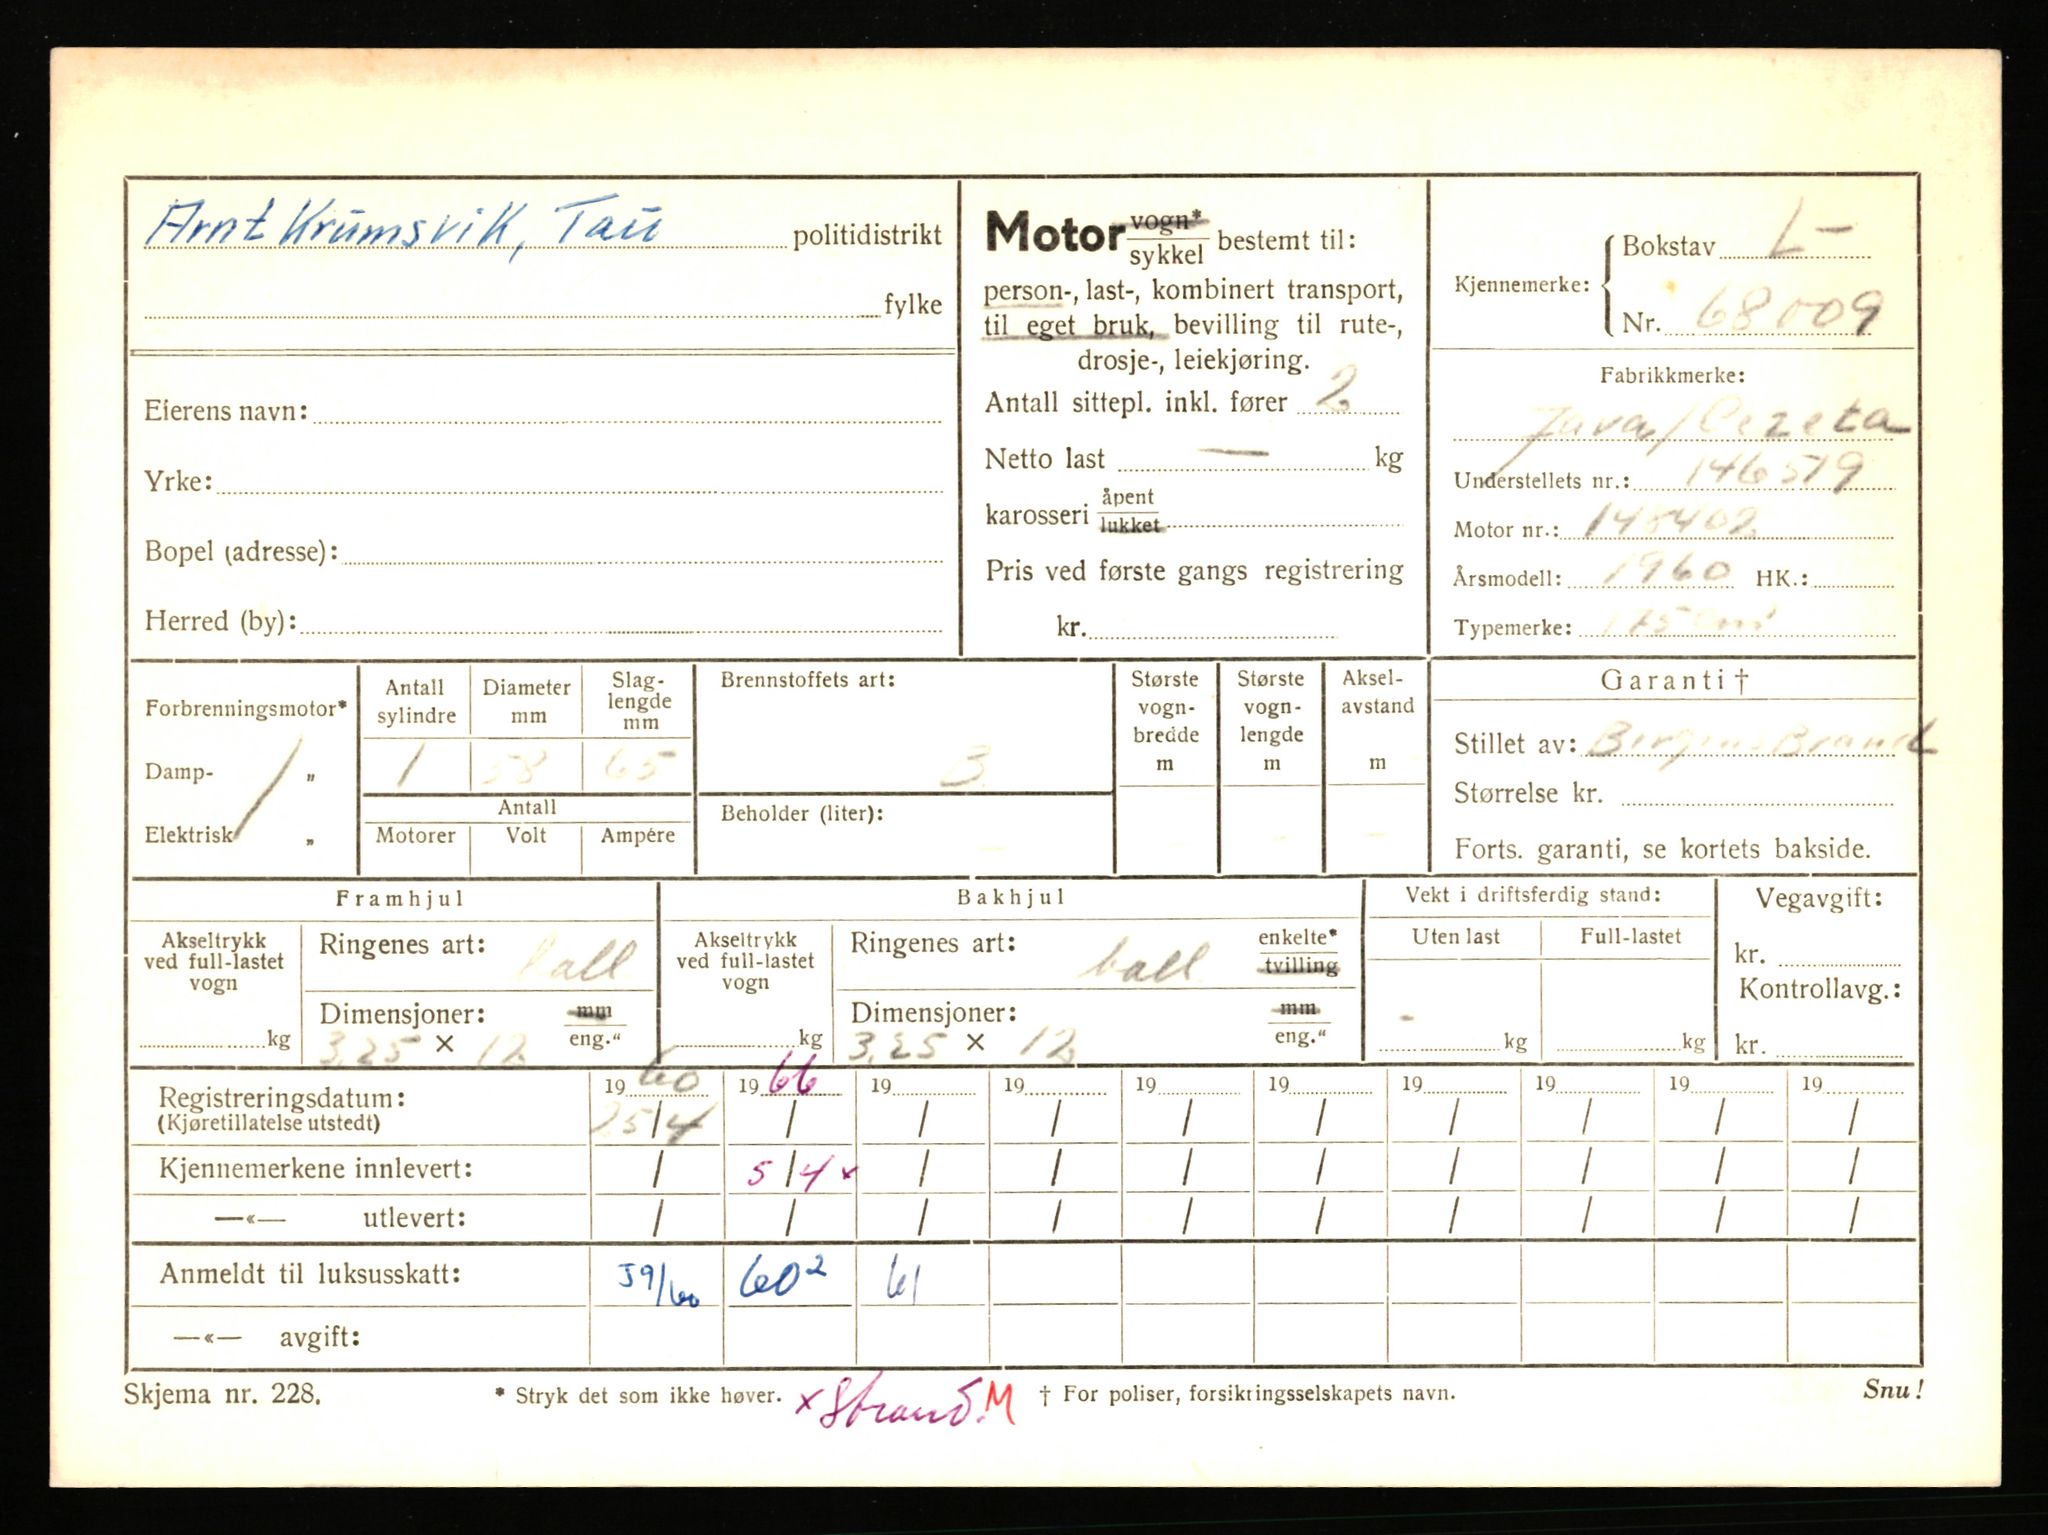 Arnt Krumsvik, Tau politidistrikt
fylke
Eierens navn:
Yrke:
Bopel (adresse):
Herred (by):
Motor vogn* / sykkel bestemt til:
person-, last-, kombinert transport,
til eget bruk, bevilling til rute-,
drosje-, leiekjøring.
Antall sittepl. inkl. fører 2
Netto last — kg
karosseri åpent / lukket
Pris ved første gangs registrering
kr.
Kjennemerke: Bokstav L-
Nr. 68009
Fabrikkmerke:
Java/Cezeta
Understellets nr.: 146519
Motor nr.: 145402
Årsmodell: 1960 HK.:
Typemerke: 175
Forbrenningsmotor*
Damp- „
Elektrisk „
Antall sylindre
Diameter mm
Slag-lengde mm
1 58 65
Antall
Motorer Volt Ampére
Brennstoffets art:
B
Beholder (liter):
Største vogn-bredde m
Største vogn-lengde m
Aksel-avstand m
Garanti †
Stillet av: Bergens Brand
Størrelse kr.
Forts. garanti, se kortets bakside.
Framhjul
Akseltrykk ved full-lastet vogn
kg
Ringenes art: ball
Dimensjoner: mm / eng."
3,25 × 12
Bakhjul
Akseltrykk ved full-lastet vogn
kg
Ringenes art: ball enkelte* / tvilling
Dimensjoner: mm / eng."
3,25 × 12
Vekt i driftsferdig stand:
Uten last Full-lastet
- kg kg
Vegavgift:
kr.
Kontrollavg.:
kr.
19 60 19 66 19 19 19 19 19 19 19 19
Registreringsdatum: 25/4 / / / / / / / / /
(Kjøretillatelse utstedt)
Kjennemerkene innlevert: / 5/4 x / / / / / / / /
—«— utlevert: / / / / / / / / / /
Anmeldt til luksusskatt: J9/60 60² 61
—«— avgift:
Skjema nr. 228. * Stryk det som ikke høver. x Strand. M † For poliser, forsikringsselskapets navn. Snu!